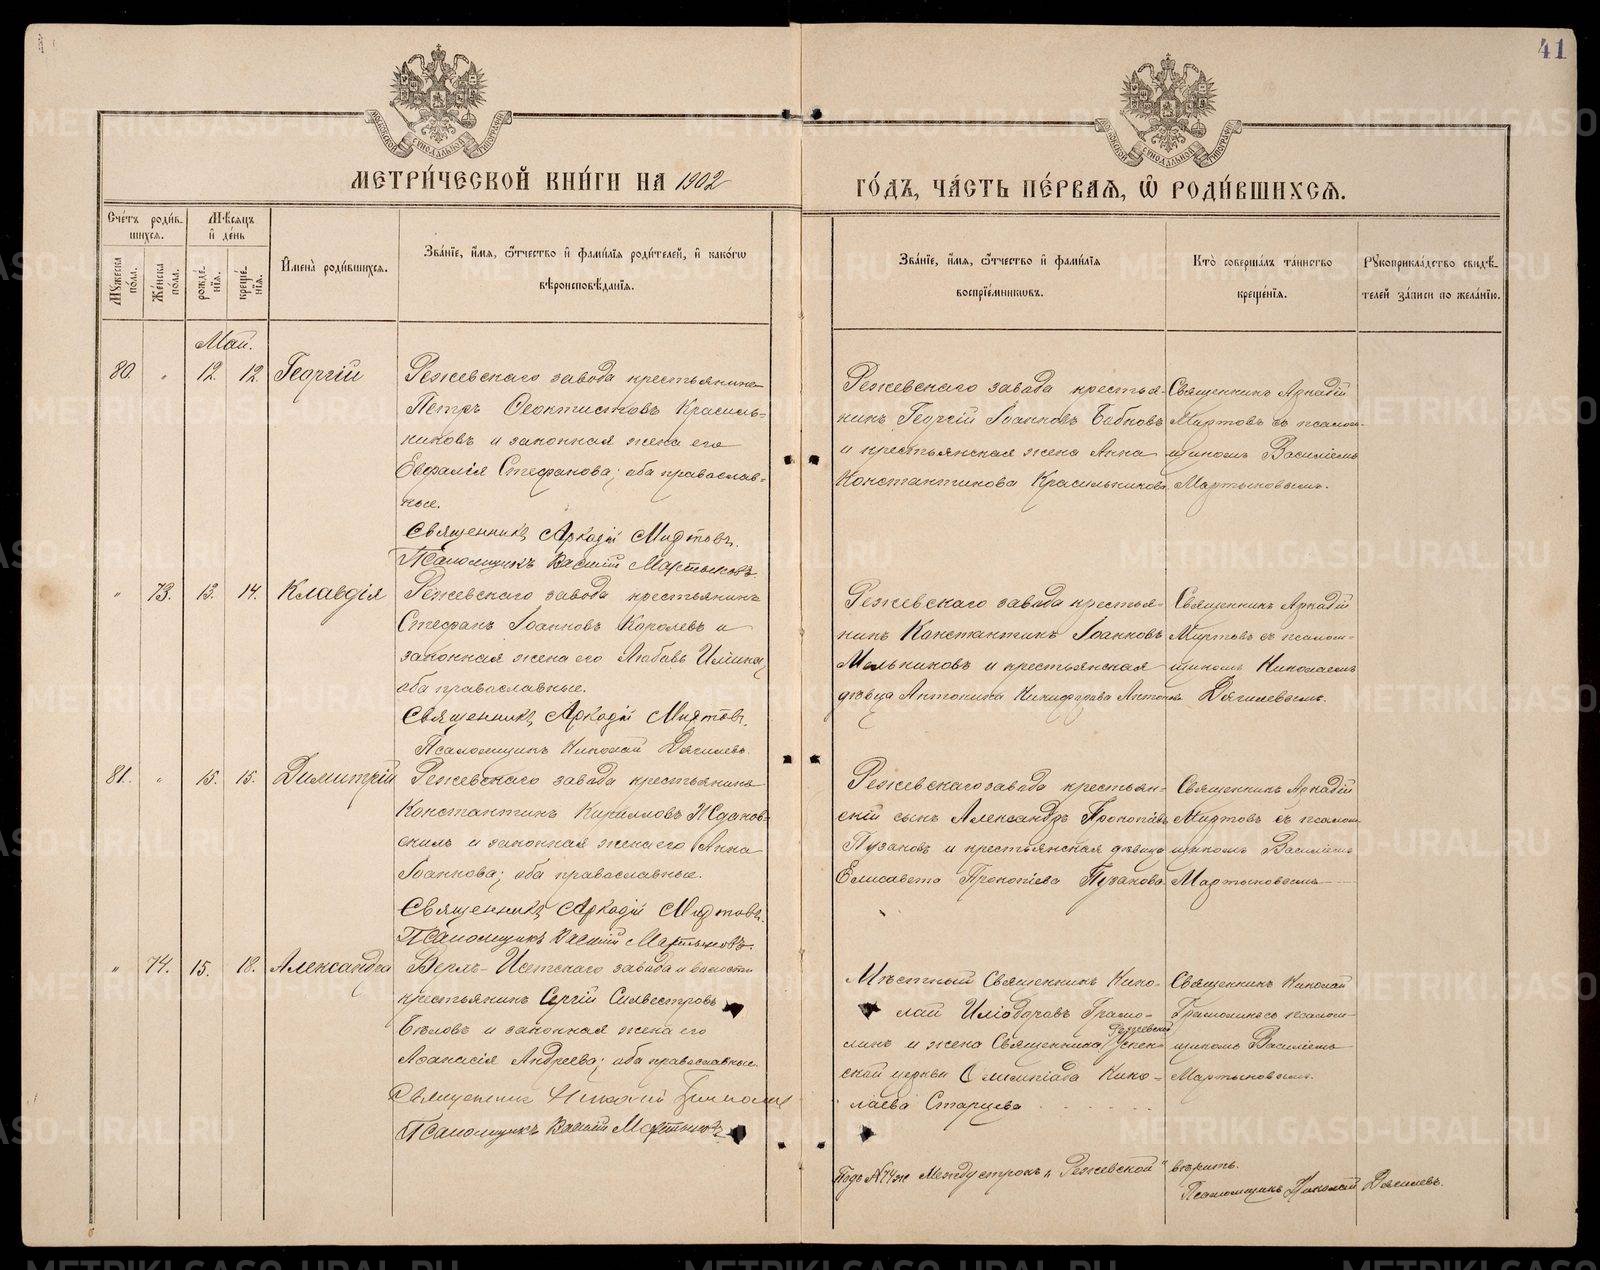 41
МЕТРИ́ЧЕСКОЙ КНИ́ГИ НА 1902
ГО́ДЪ, ЧА́СТЬ ПЕ́РВАѦ, Ѡ҆ РОДИ́ВШИХСѦ.
Сче́тъ роди́в-
шихся.
Мѣ́сяцъ
и҆ де́нь
Му́жеска
по́ла.
Же́нска
по́ла.
рожде́-
нїя.
креще́-
нїя.
И҆мена̀ роди́вшихся.
Зва́нїе, и҆́мя, ѻ҆́тчество и҆ фами́лїя роди́телей, и҆ како́гѡ
вѣроисповѣ́данїя.
Зва́нїе, и҆́мя, ѻ҆́тчество и҆ фами́лїя
воспрїе́мниковъ.
Кто̀ соверша́лъ та́инство
креще́нїя.
Рꙋкоприкла́дство свидѣ́-
телей за́писи по жела́нїю.
Май.
80. " 12. 12. Георгій
Режевскаго завода крестьянинъ
Петръ Ѳеоктистовъ Красиль-
никовъ и законная жена его
Евфалія Стефанова; оба православ-
ные.
Священникъ Аркадій Миртовъ.
Псаломщикъ Василій Мартыновъ
Режевскаго завода крестья-
нинъ Георгій Іоанновъ Бабковъ
и крестьянская жена Анна
Константинова Красильникова
Священникъ Аркадій
Миртовъ съ псалом-
щикомъ Василіемъ
Мартыновымъ.
" 73. 13. 14. Клавдія
Режевскаго завода крестьянинъ
Стефанъ Іоанновъ Королевъ и
законная жена его Любовь Ильина,
оба православные.
Священникъ Аркадій Миртовъ.
Псаломщикъ Николай Дягилевъ.
Режевскаго завода крестья-
нинъ Константинъ Іоанновъ
Мельниковъ и крестьянская
дѣвица Антонина Никифорова
Священникъ Аркадій
Миртовъ съ псалом-
щикомъ Николаемъ
Дягилевымъ.
81. " 15. 15. Димитрій
Режевскаго завода крестьянинъ
Константинъ Кирилловъ Жданов-
скихъ и законная жена его Анна
Іоаннова; оба православные.
Священникъ Аркадій Миртовъ.
Псаломщикъ Василій Мартыновъ.
Режевскаго завода крестьян-
скій сынъ Александръ Прокопіевъ
Пузановъ и крестьянская дѣвица
Елисавета Прокопіева Пузанова
Священникъ Аркадій
Миртовъ съ псалом-
щикомъ Василіемъ
Мартыновымъ
" 74. 15. 18. Александра
Верхъ-Исетскаго завода и волости
крестьянинъ Сергій Сильвестровъ
Бѣловъ и законная жена его
Аѳанасія Андреева; оба православные.
Священникъ Николай
Псаломщикъ Василій Мартыновъ
Мѣстный Священникъ Нико-
лай Иліодоровъ Грамо-
линъ и жена Священника Режевской Успен-
ской церкви Олимпіада Нико-
лаева Старцева
Священникъ Николай
Грамолинъ съ псалом-
щикомъ Василіемъ
Мартыновымъ.
Подъ №74ж между строкъ „Режевской" вѣрить.
Псаломщикъ Николай Дягилевъ.
METRIKI.GASO-URAL.RU